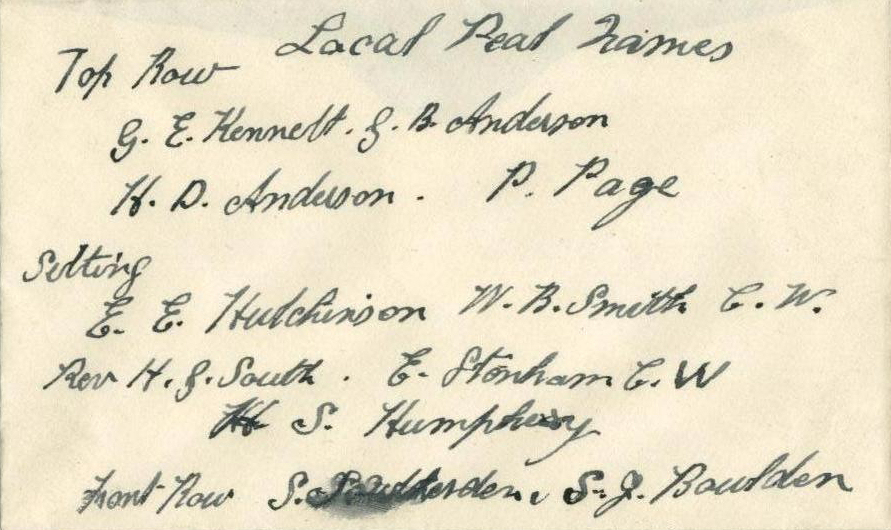 Local Peal Names
Top Row
G. E. Kennett. J. B. Anderson
H. D. Anderson. P. Page
Sitting
E. E. Hutchinson W. B. Smith C. W.
Rev H. J. South. E. Stonham C. W
S. Humphrey
Front Row S. S. J. Boulden